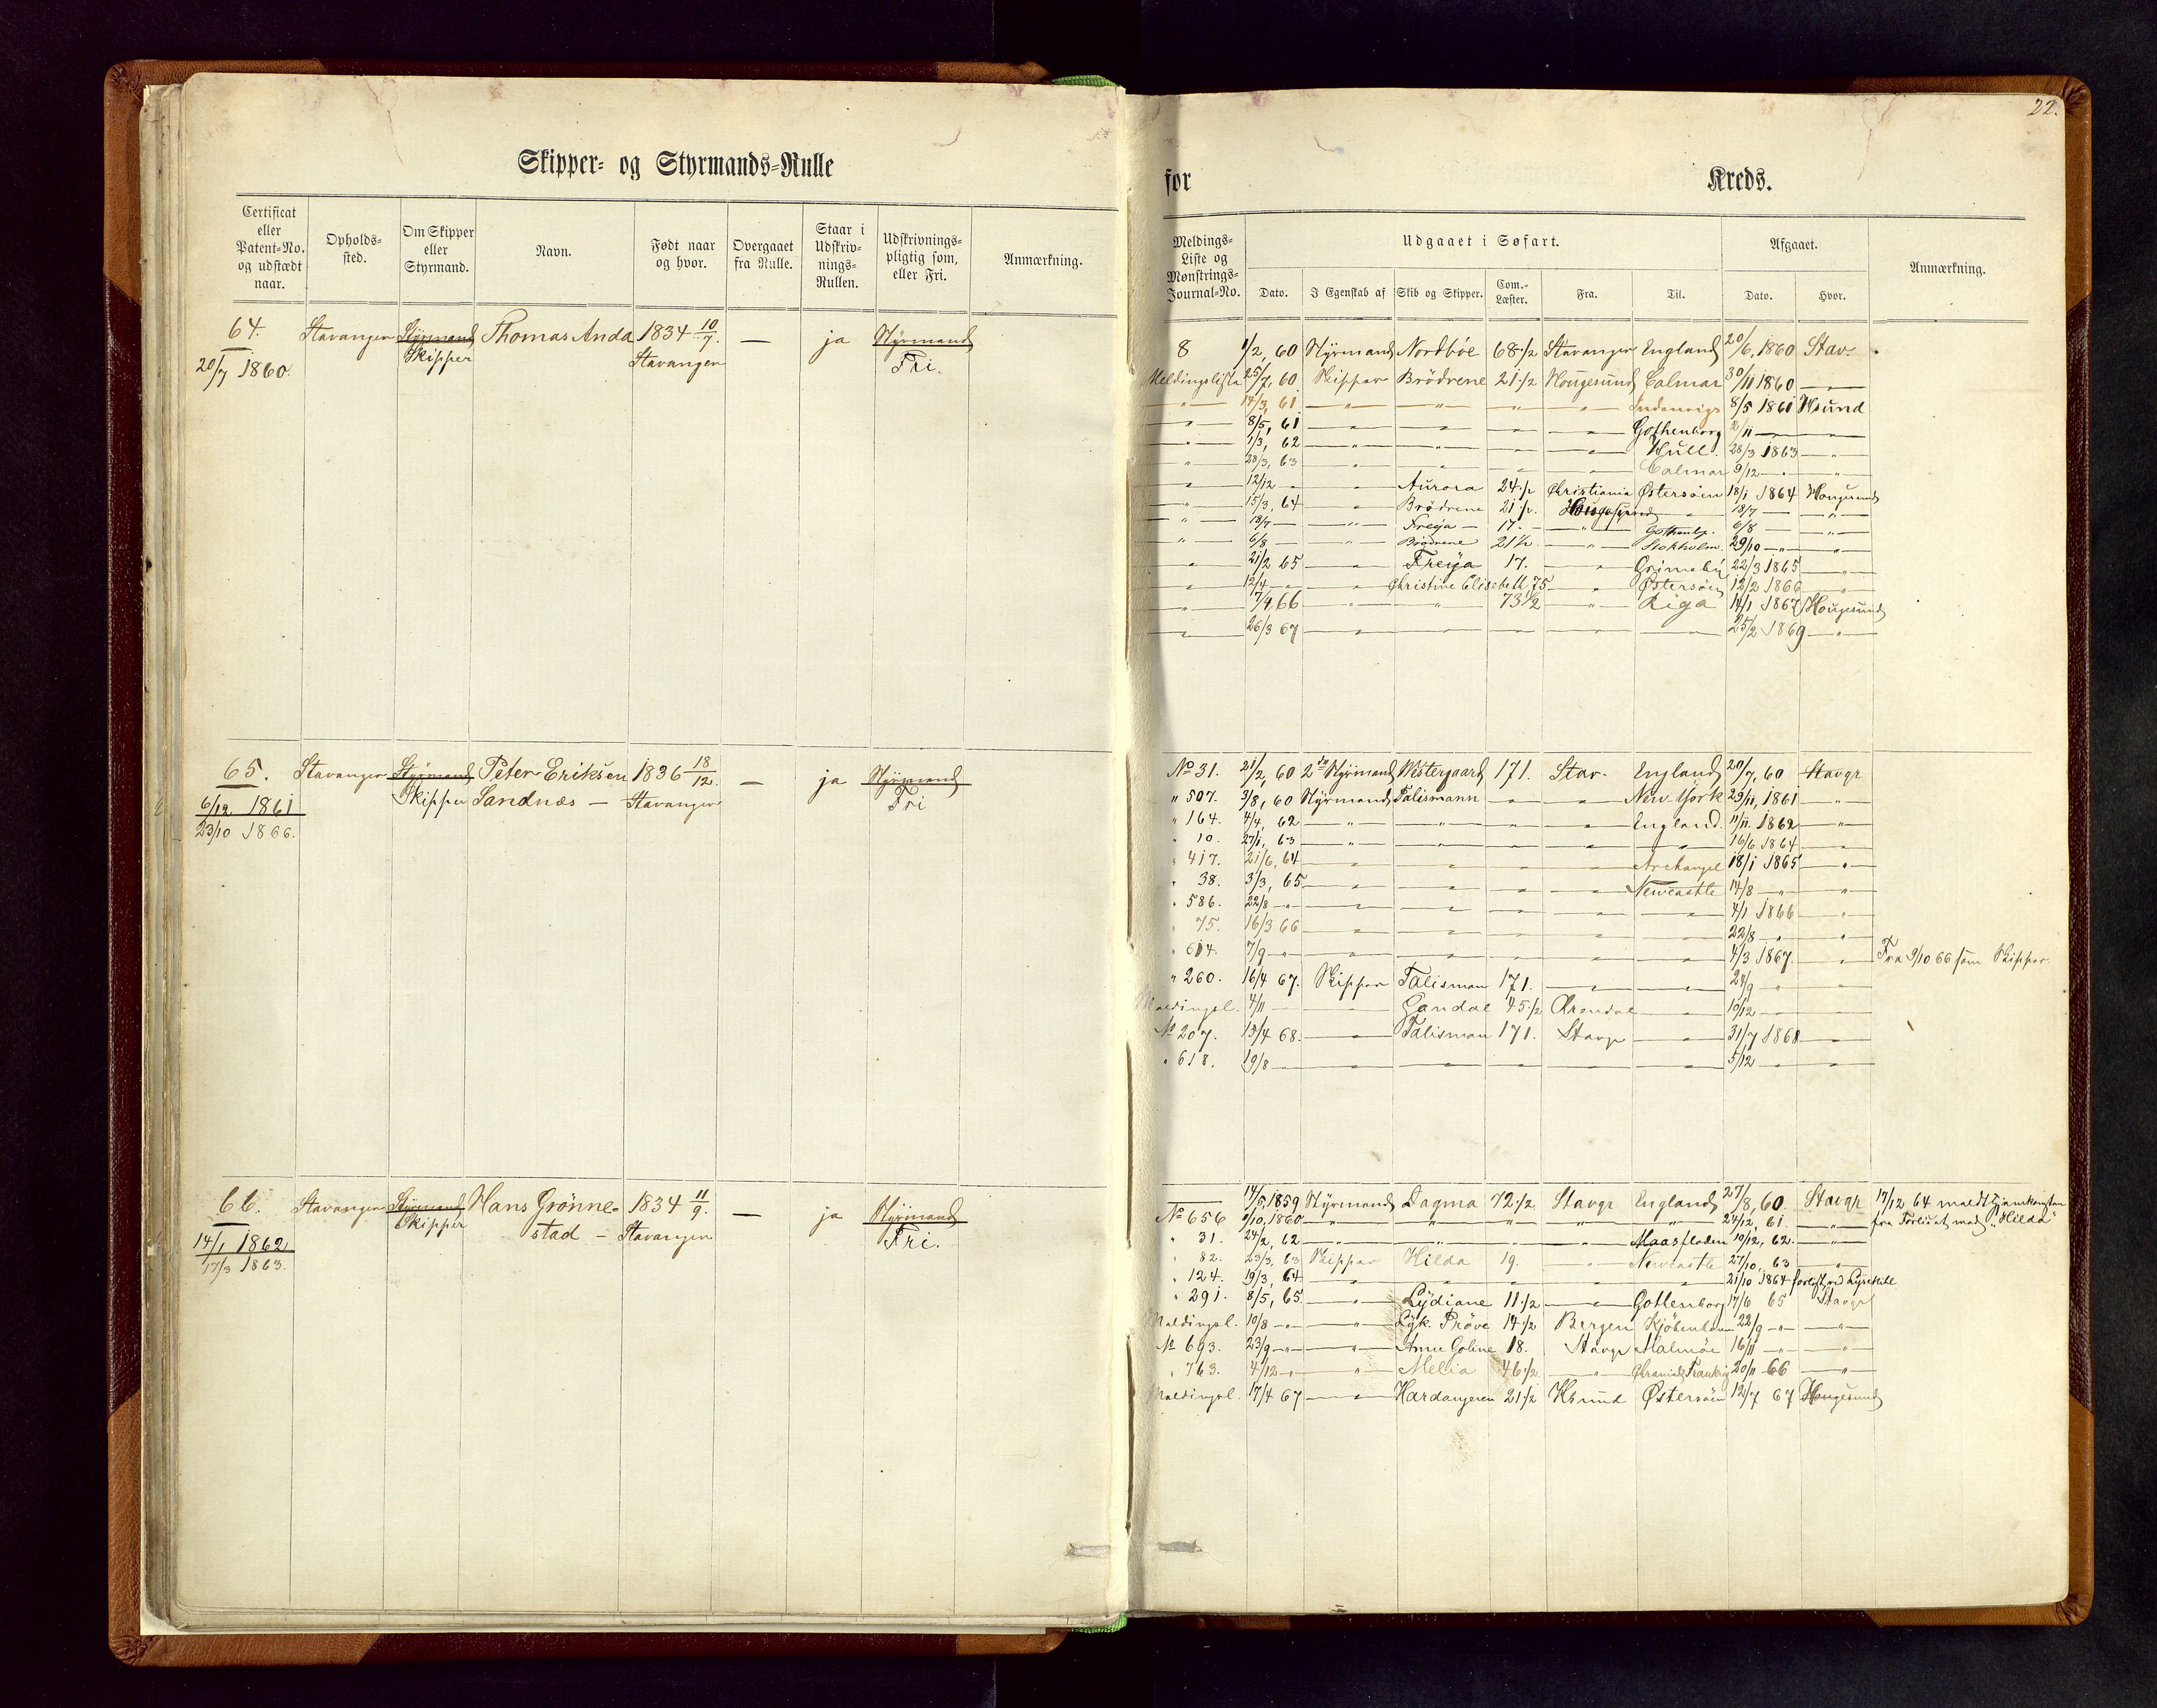 22.
Skipper- og Styrmands-Rulle
for Kreds.
Certificat eller Patent-No. og udstædt naar.
Opholds-sted.
Om Skipper eller Styrmand.
Navn.
Født naar og hvor.
Overgaaet fra Rulle.
Staar i Udskriv-nings-Rullen.
Udskrivnings-pligtig som, eller Fri.
Anmærkning.
Meldings-Liste og Mønstrings-Journal-No.
Udgaaet i Søfart.
Dato. I Egenskab af Skib og Skipper. Com.-Læster. Fra. Til.
Afgaaet.
Dato. Hvor.
Anmærkning.
64. Stavanger Styrmand Thomas Anda 1834 10/7. — ja Styrmand
20/7 1860. Skipper Stavanger Fri.
8 1/2, 60 Styrmand Nordböe 68 1/2 Stavanger England 20/6, 1860 Stav.
Meldingsliste 25/7, 60 Skipper Brödrene 21 1/2 Hougesund Calmar 30/11 1860 — " —
— " — 14/3, 61 — " — — " — — " — — " — 8/5 1861 Hsund
— " — 8/5, 61 — " — — " — — " — — " — Gothenborg 2/11 — — " —
— " — 1/3, 62 — " — — " — — " — — " — Hull. 28/3 1863 — " —
— " — 28/3, 63 — " — — " — — " — — " — Calmar 9/12 — " — — " —
— " — 12/12 — " — — " — Aurora 24 1/2 Christiania Østersöen 18/1 1864 Hougesund
— " — 15/3, 64 — " — Brödrene 21 1/2. Hougesund — " — 18/7 — — " —
— " — 18/7 — — " — Freya — 17. — " — Gothenb. 6/8 — — " —
— " — 6/8 — — " — Brödrene 21 1/2 — " — Stokholm. 29/10 — " — — " —
— " — 21/2 65 — " — Freya 17. — " — Grimsby 22/3 1865 — " —
— " — 12/4 — " — — " — Christine Elisabeth 75 — " — Østersöen 12/2 1866 — " —
— " — 7/4 66 — " — — " — 73 1/2 — " — Riga 14/1 1867 Hougesund
— " — 26/3 67 — " — — " — — " — — " — — " — 25/2 1869 — " —
65. Stavanger Styrmand Peter Eriksen 1836 18/12. — ja Styrmand
6/12 1861 Skipper Sandnæs — Stavanger Fri
23/10 1866.
No 31. 21/2, 60 2den Styrmand Westergaard 171. Stav. England 20/7, 60 Stavgr
" 507. 3/8, 60 Styrmand Talismann — " — — " — New York 29/11, 1861 — " —
" 164. 4/4, 62 — " — — " — — " — — " — England. 11/11. 1862 — " —
" 10. 27/1, 63 — " — — " — — " — — " — — " — 16/6 1864 — " —
" 417. 21/6, 64 — " — — " — — " — — " — Archangel 18/1 1865 — " —
" 38. 3/3, 65 — " — — " — — " — — " — Newcastle 14/8 — " — — " —
" 586. 22/8 — " — — " — — " — — " — — " — — " — 4/1 1866 — " —
" 75. 16/3 66 — " — — " — — " — — " — — " — 22/8 — " — — " —
" 614. 7/9 — " — — " — — " — — " — — " — — " — 4/3 1867. — " — Fra 9/10 66 som Skipper.
" 260. 16/4 67. Skipper Talisman 171. — " — — " — 24/9 — " — — " —
Meldingsl. 4/11 — — " — Gandal 45 1/2 Arendal — " — 10/12 — — " —
No 207. 13/4 68. — " — Talisman 171. Stavgr — " — 31/7 1868 — " —
" 618. 19/8 — — " — — " — — " — — " — — " — 5/12 — " — — " —
66. Stavanger Styrmand Hans Grönne- 1834 11/9. — ja Styrmand
14/1 1862 Skipper stad — Stavanger Fri.
17/3 1863.
14/5, 1859 Styrmand Dagma 72 1/2 Stavgr England 27/8, 60. Stavgr 17/12 64 meldt hjemkommen
No 656 1/10, 1860 — " — — " — — " — — " — — " — 24/12, 61. — " — fra Forliset med "Hilda"
" 31. 24/2, 62 — " — — " — — " — — " — Maasfloden 10/12, 62. — " —
" 82. 23/3, 63 Skipper Hilda 19. — " — Newcastle 27/10, 63 — " —
" 124. 19/3, 64 — " — — " — — " — — " — — " — 21/10 1864 forlist ved Lysekile
" 291. 8/5, 65 — " — Lydiane 11 1/2 — " — Gottenborg 17/6 65 Stavgr
Meldingsl. 10/8 — " — — " — Lyk. Pröve 14 1/2 Bergen Kjöbenhavn 22/9 — " — — " —
No 693. 23/9 — " — — " — Anne Goline 18. Stavgr Malmöe 16/11 — " — — " —
" 763. 4/12 — " — — " — Melia 46 1/2. — " — 20/11 66 — " —
Meldingsl. 17/4 67 — " — Hardangeren 21 1/2 Hsund Østersöen 12/7 67 Hougesund